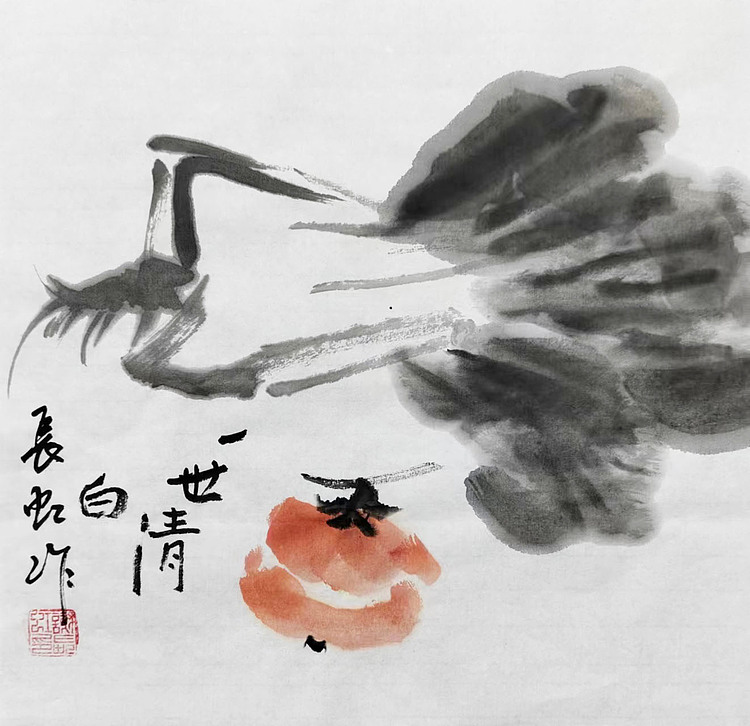 一世清白
長虹作